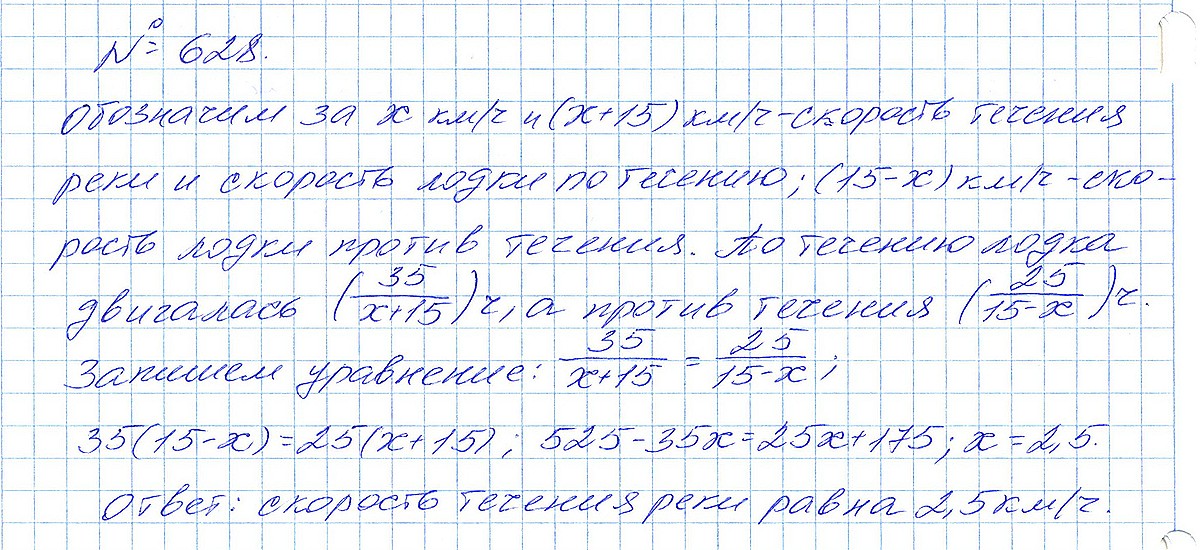 № 628.
Обозначим за x км/ч и (x+15) км/ч - скорость течения
реки и скорость лодки по течению; (15-x) км/ч - ско-
рость лодки против течения. По течению лодка
двигалась (35/(x+15)) ч, а против течения (25/(15-x)) ч.
Запишем уравнение: 35/(x+15) = 25/(15-x);
35(15-x)=25(x+15); 525-35x=25x+175; x=2,5.
Ответ: скорость течения реки равна 2,5 км/ч.